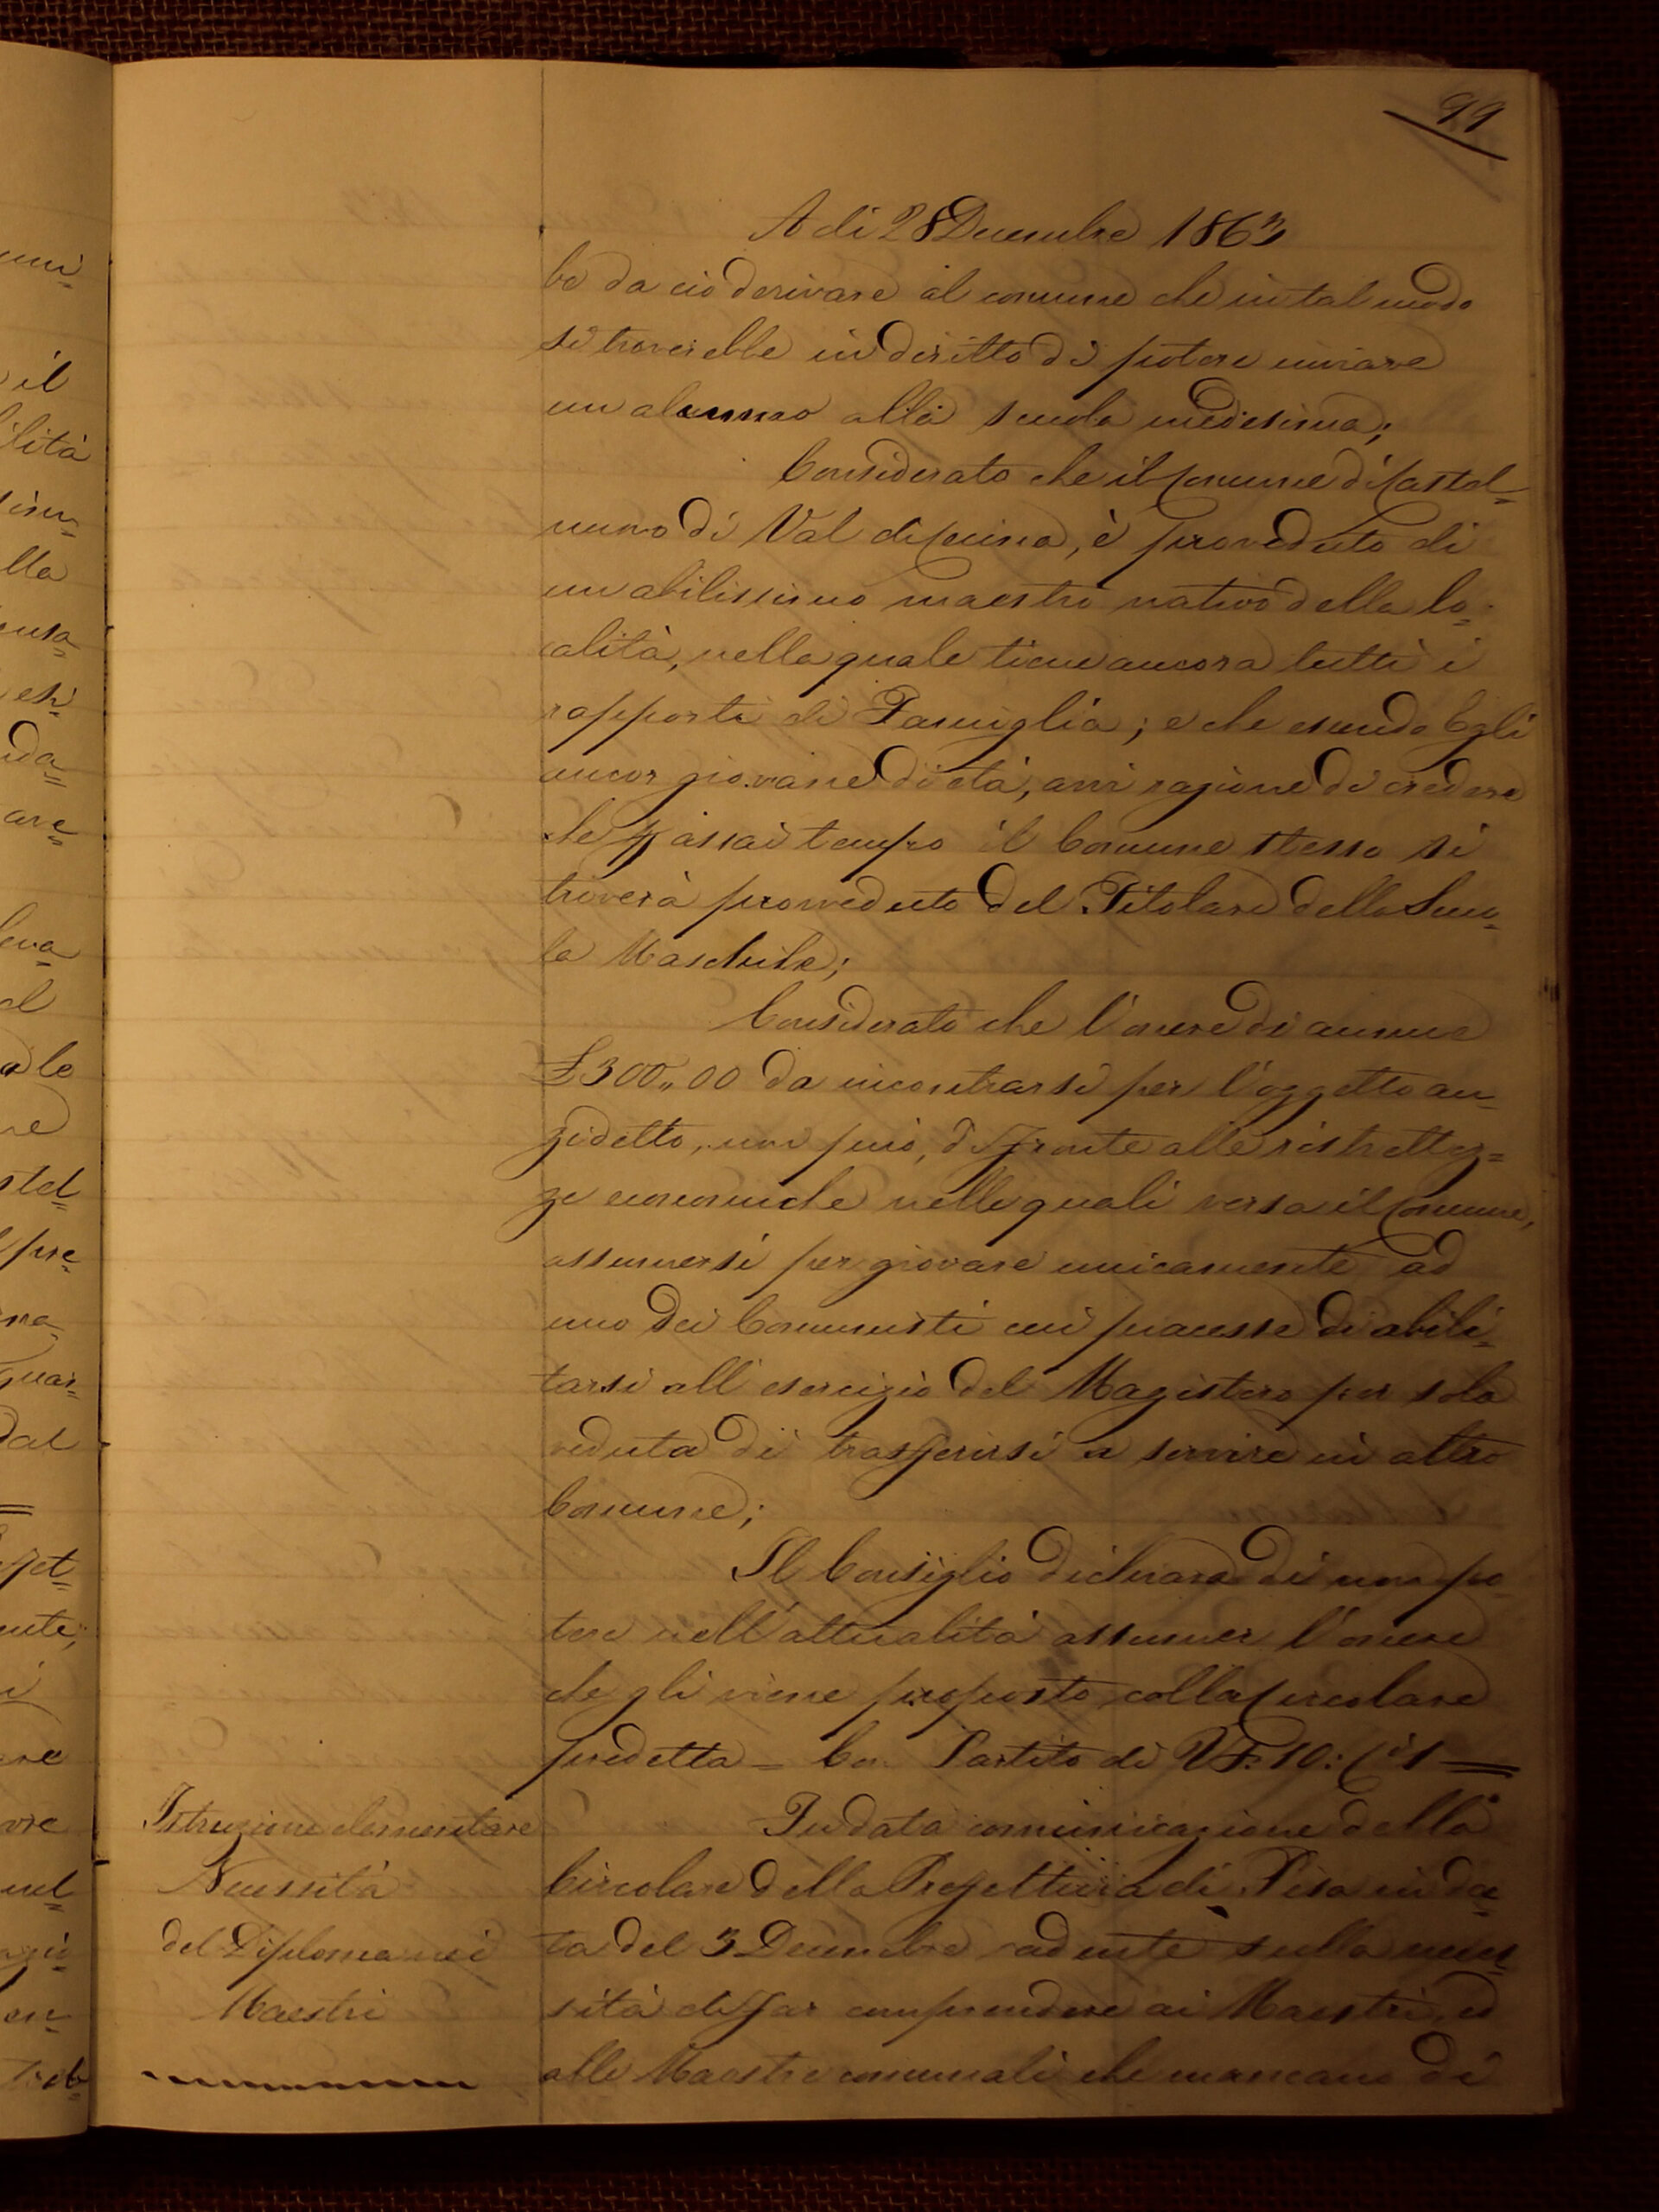 99
A di 28 Decembre 1863
be da ciò derivare al comune che in tal modo
si troverebbe in diritto di potere inviare
un alunno alla scuola medesima;
Considerato che il Comune di Castel=
nuovo di Val di Cecina, è proveduto di
un abilissimo maestro nativo della lo=
calità, nella quale tiene ancora tutti i
rapporti di Famiglia; e che essendo Egli
ancor giovane di età, avvi ragione di credere
che p assai tempo il Comune stesso si
troverà provveduto del Titolare della Scuo=
la Maschile;
Considerato che l'onere di annue
£300,,00 da incontrarsi per l'oggetto an=
zidetto, non può, di fronte alle ristrettez=
ze economiche nelle quali versa il Comune,
assumersi per giovare unicamente ad
uno dei Comunisti cui piacesse di abili=
tarsi all esercizio del Magistero per sola
veduta di trasferirsi a servire in altro
Comune;
Il Consiglio dichiara di non po
tere nell'attualità assumer l'onere
che gli viene proposto colla Circolare
predetta = Con Partito di VF. 10: Ci 1 =
Istruzione elementare
Necessità
del Diploma nei
Maestri
Fu data comunicazione della
Circolare della Prefettura di Pisa in da=
ta del 3 Decembre cadente sulla neces=
sità di far comprendere ai Maestri, ed
alle Maestre comunali che mancano di
mi=
il
lità
lla
esi=
ida=
are=
eva=
el
re
stel=
pre=
na=
guar=
dal
ente;
i
are
ore
nel=
en=